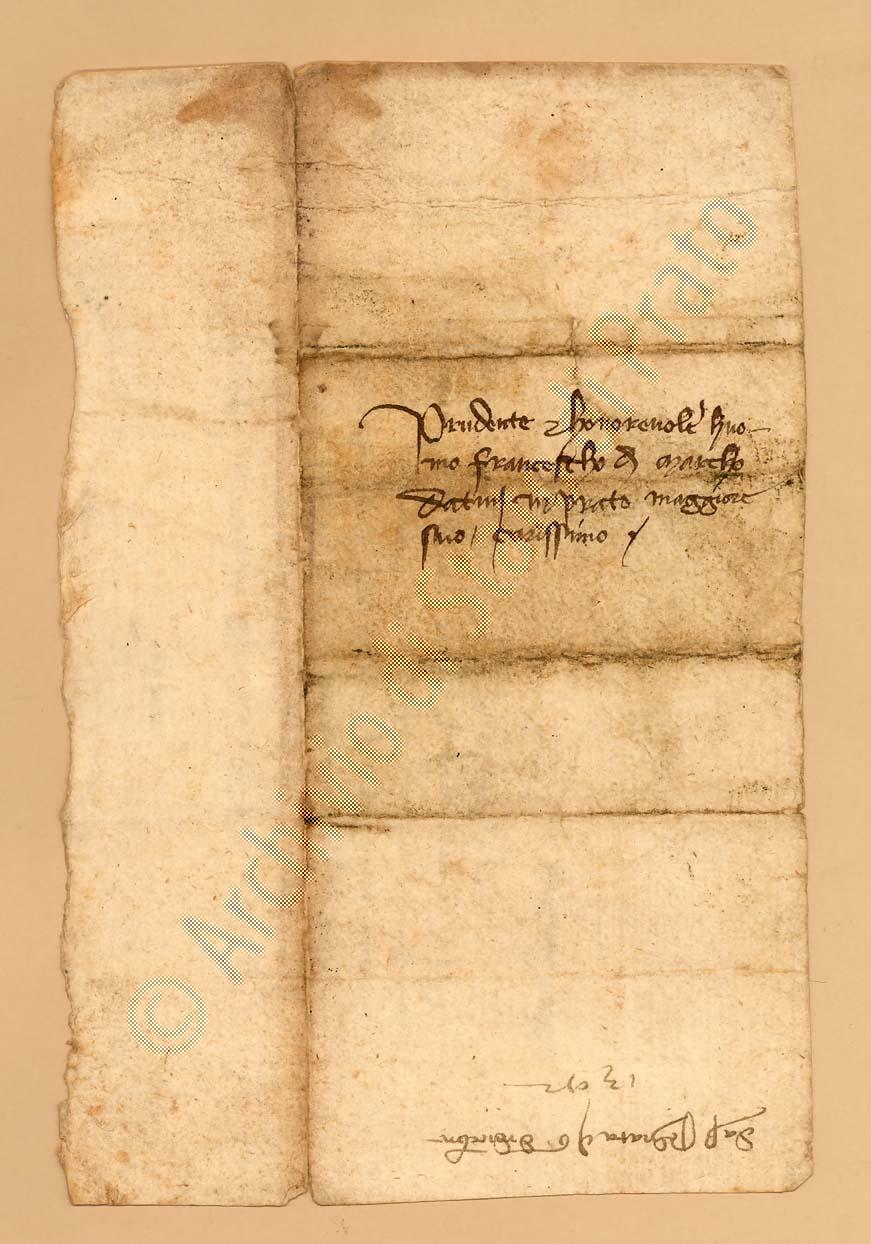 Prudente & honorevole huo-
mo Francescho di Marcho
Datini in Prato maggiore
suo carissimo
1392
© Archivio di Stato di Prato